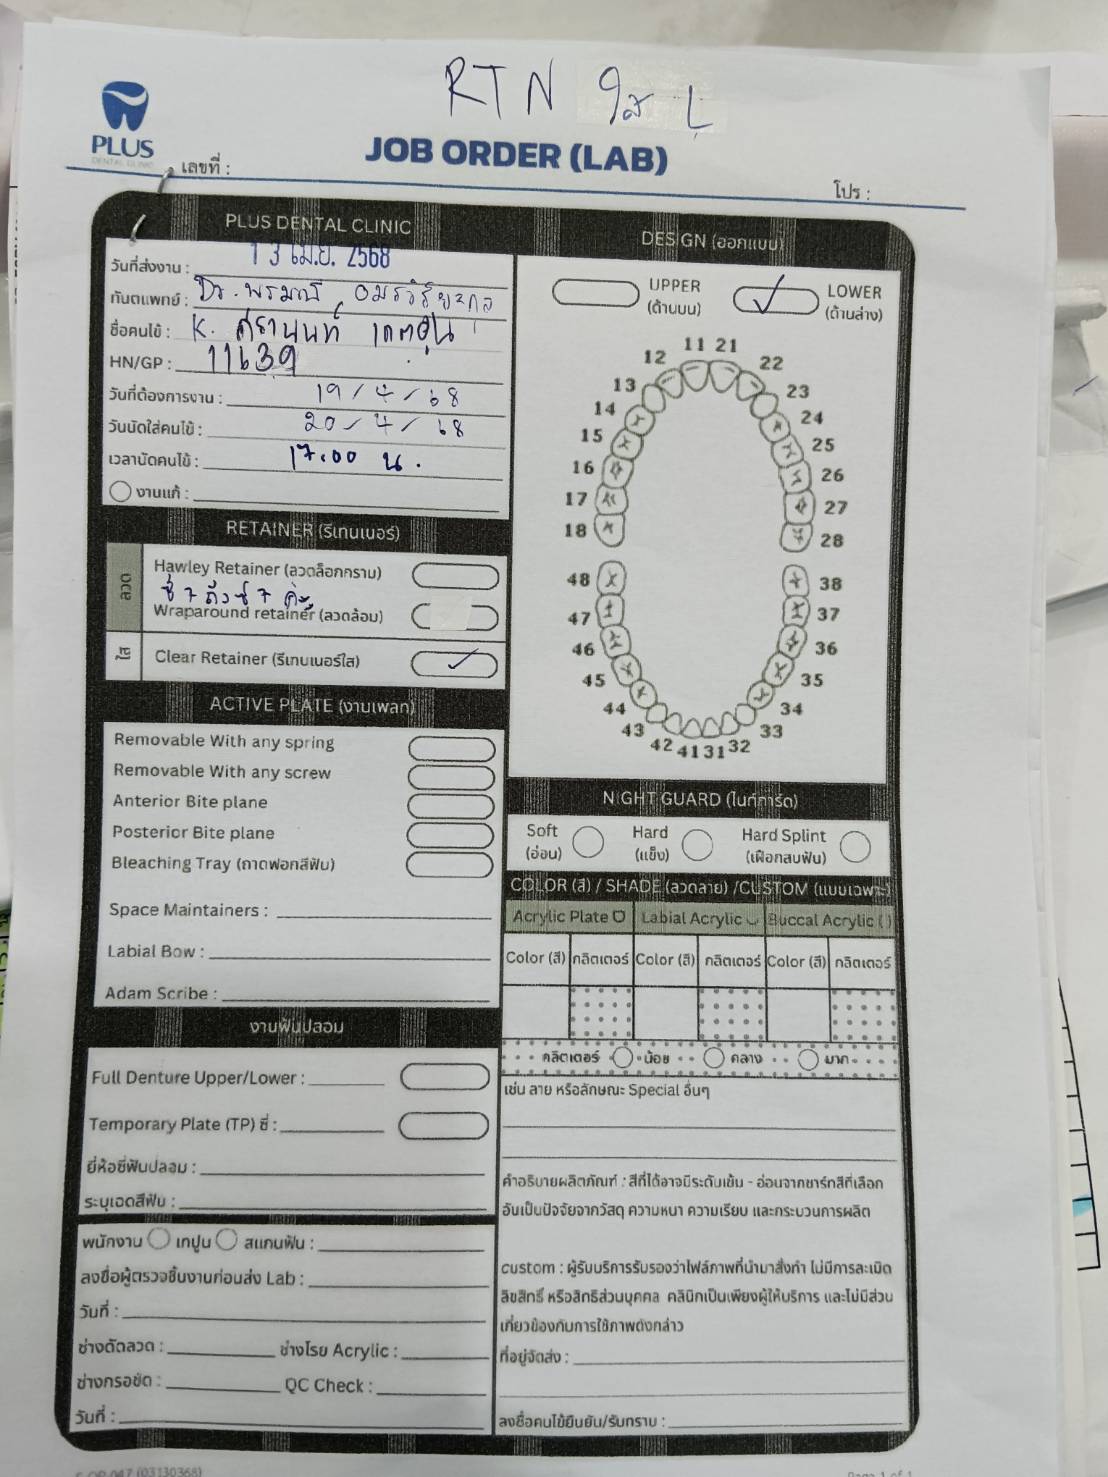 RTN ใส L
PLUS
DENTAL CLINIC
JOB ORDER (LAB)
เลขที่ :
โปร :
PLUS DENTAL CLINIC
วันที่ส่งงาน : 13 เม.ย. 2568
ทันตแพทย์ : Dr.
ชื่อคนไข้ : K.
HN/GP : 11639
วันที่ต้องการงาน : 19/4/68
วันนัดใส่คนไข้ : 20/4/68
เวลานัดคนไข้ : 17.00 น.
งานแก้ :
RETAINER (รีเทนเนอร์)
ลวด
Hawley Retainer (ลวดล็อกกราม)
ซี่ 7 ถึงซี่ 7 ค่ะ
Wraparound retainer (ลวดล้อม)
ใส
Clear Retainer (รีเทนเนอร์ใส)
ACTIVE PLATE (งานเพลท)
Removable With any spring
Removable With any screw
Anterior Bite plane
Posterior Bite plane
Bleaching Tray (ถาดฟอกสีฟัน)
Space Maintainers :
Labial Bow :
Adam Scribe :
งานฟันปลอม
Full Denture Upper/Lower :
Temporary Plate (TP) ซี่ :
ยี่ห้อซี่ฟันปลอม :
ระบุเฉดสีฟัน :
พนักงาน เทปูน สแกนฟัน :
ลงชื่อผู้ตรวจชิ้นงานก่อนส่ง Lab :
วันที่ :
ช่างดัดลวด : ช่างโรย Acrylic :
ช่างกรอขัด : QC Check :
วันที่ :
DESIGN (ออกแบบ)
UPPER
(ด้านบน)
LOWER
(ด้านล่าง)
11 21
12 22
13 23
14 24
15 25
16 26
17 27
18 28
48 38
47 37
46 36
45 35
44 34
43 33
42 41 31 32
NIGHT GUARD (ไนท์การ์ด)
Soft
(อ่อน)
Hard
(แข็ง)
Hard Splint
(เฝือกสบฟัน)
COLOR (สี) / SHADE (ลวดลาย) /CUSTOM (แบบเฉพาะ)
Acrylic Plate Labial Acrylic Buccal Acrylic ( )
Color (สี) กลิตเตอร์ Color (สี) กลิตเตอร์ Color (สี) กลิตเตอร์
กลิตเตอร์ น้อย กลาง มาก
เช่น ลาย หรือลักษณะ Special อื่นๆ
คำอธิบายผลิตภัณฑ์ : สีที่ได้อาจมีระดับเข้ม - อ่อนจากชาร์ทสีที่เลือก
อันเป็นปัจจัยจากวัสดุ ความหนา ความเรียบ และกระบวนการผลิต
custom : ผู้รับบริการรับรองว่าไฟล์ภาพที่นำมาสั่งทำ ไม่มีการละเมิด
ลิขสิทธิ์ หรือสิทธิส่วนบุคคล คลินิกเป็นเพียงผู้ให้บริการ และไม่มีส่วน
เกี่ยวข้องกับการใช้ภาพดังกล่าว
ที่อยู่จัดส่ง :
ลงชื่อคนไข้ยืนยัน/รับทราบ :